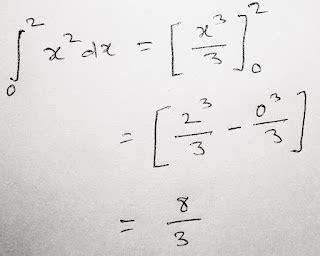 ∫₀² x² dx = [x³/3]₀²
= [2³/3 - 0³/3]
= 8/3